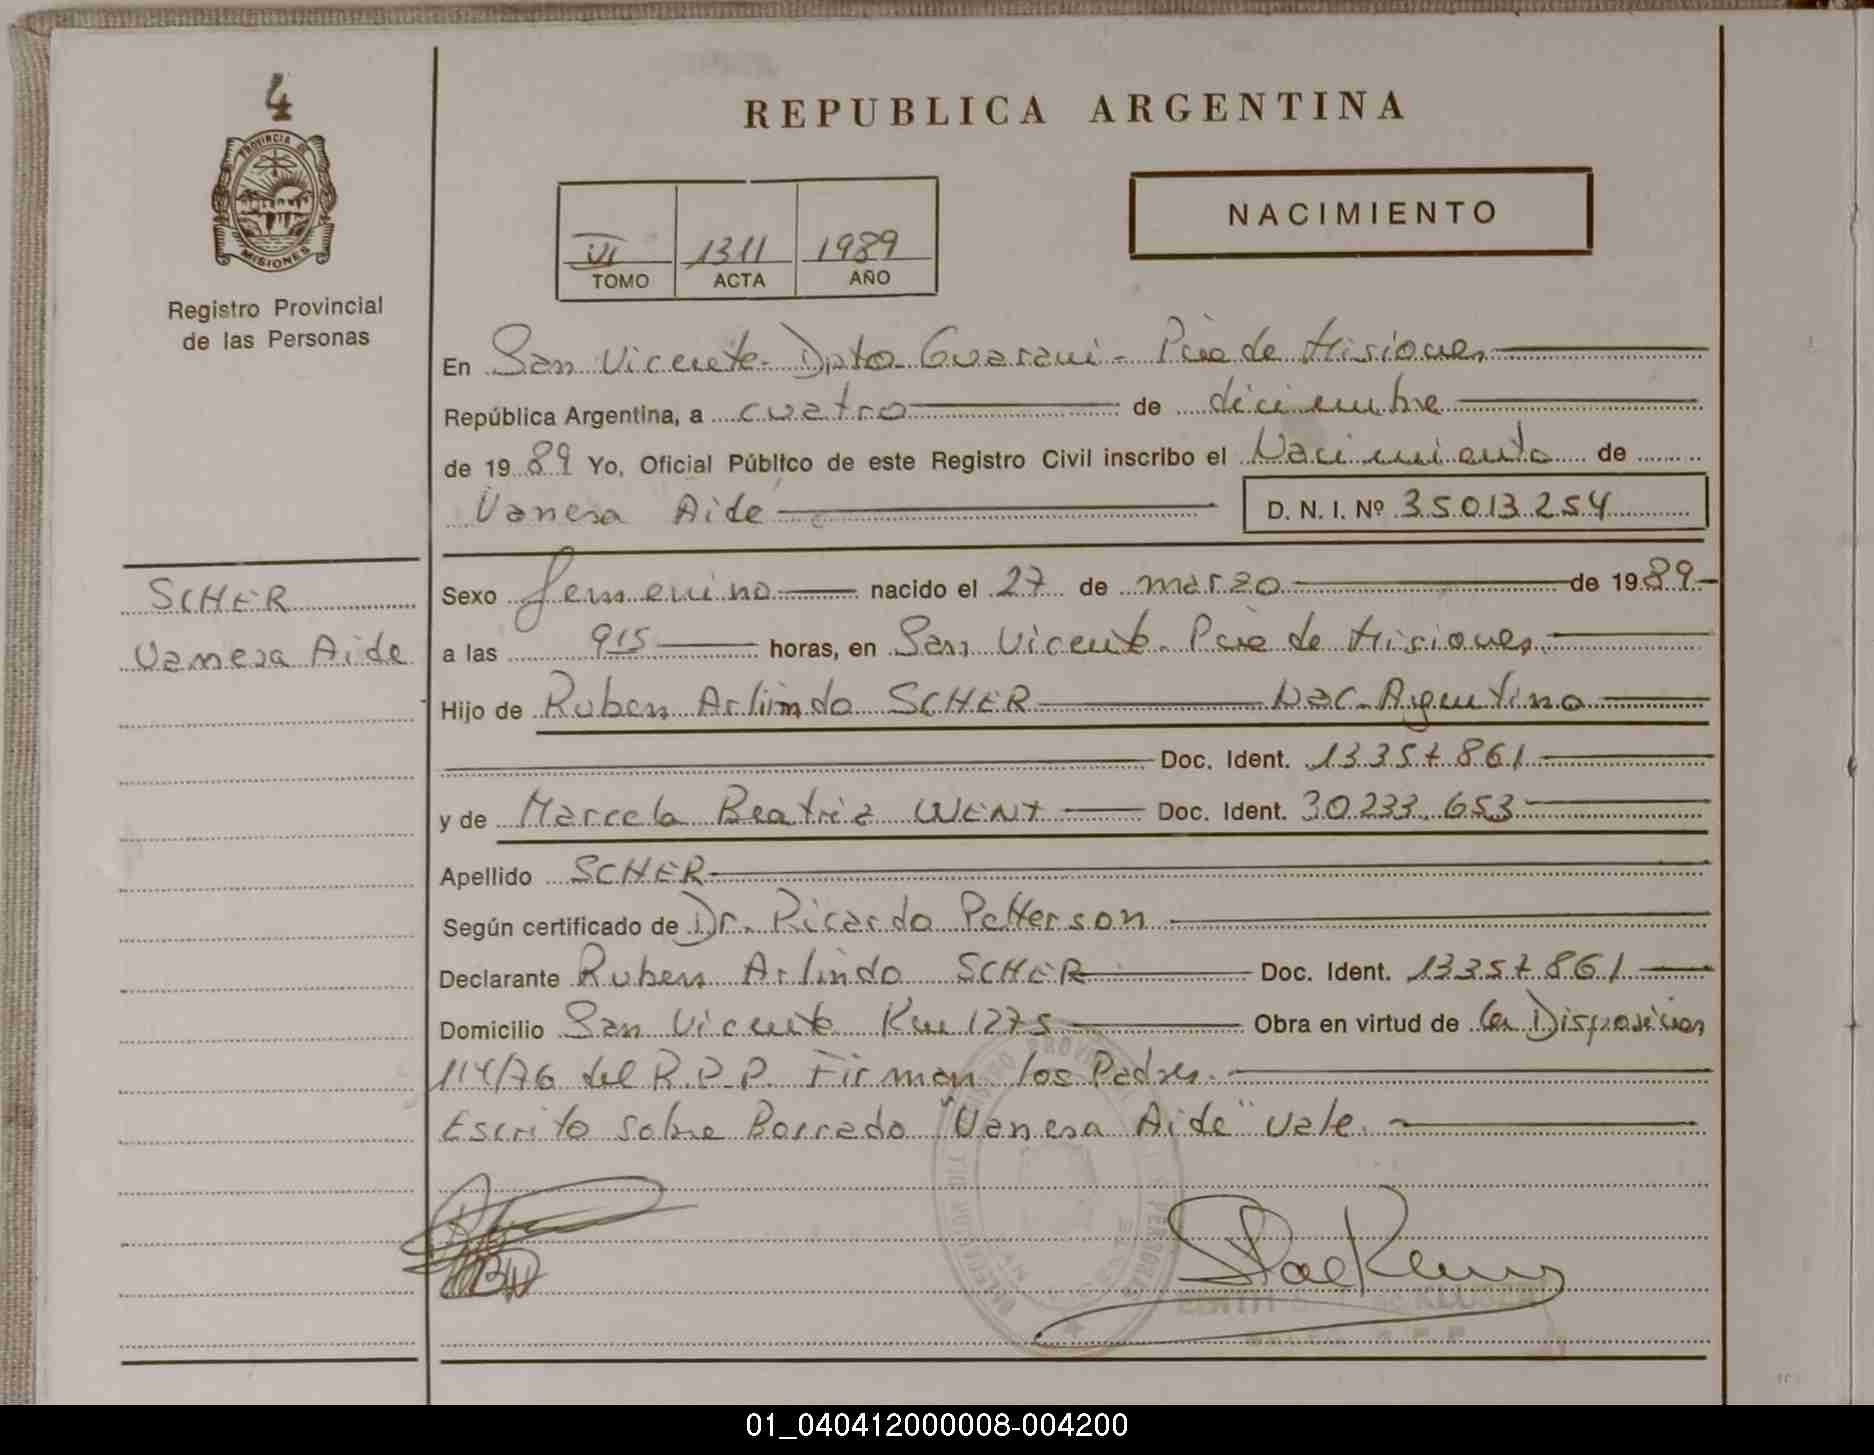 4
PROVINCIA DE
MISIONES
Registro Provincial
de las Personas
REPUBLICA ARGENTINA
NACIMIENTO
VI 1311 1989
TOMO ACTA AÑO
En San Vicente - Dpto Guarani - Pcia de Misiones
República Argentina, a cuatro de diciembre
de 1989 Yo, Oficial Público de este Registro Civil inscribo el Nacimiento de
Vanesa Aide D. N. I. Nº 35013254
SCHER
Vanesa Aide
Sexo femenino nacido el 27 de marzo de 1989
a las 915 horas, en San Vicente - Pcia de Misiones
Hijo de Ruben Arlindo SCHER Nac. Argentino
Doc. Ident. 13357861
y de Marcela Beatriz WENT Doc. Ident. 30.233.653
Apellido SCHER
Según certificado de Dr. Ricardo Petterson
Declarante Ruben Arlindo SCHER Doc. Ident. 13357861
Domicilio San Vicente Km 1275 Obra en virtud de la Disposicion
114/76 del R.P.P. Firman los Padres.
Escrito sobre Borrado "Vanesa Aide" vale.
01_040412000008-004200